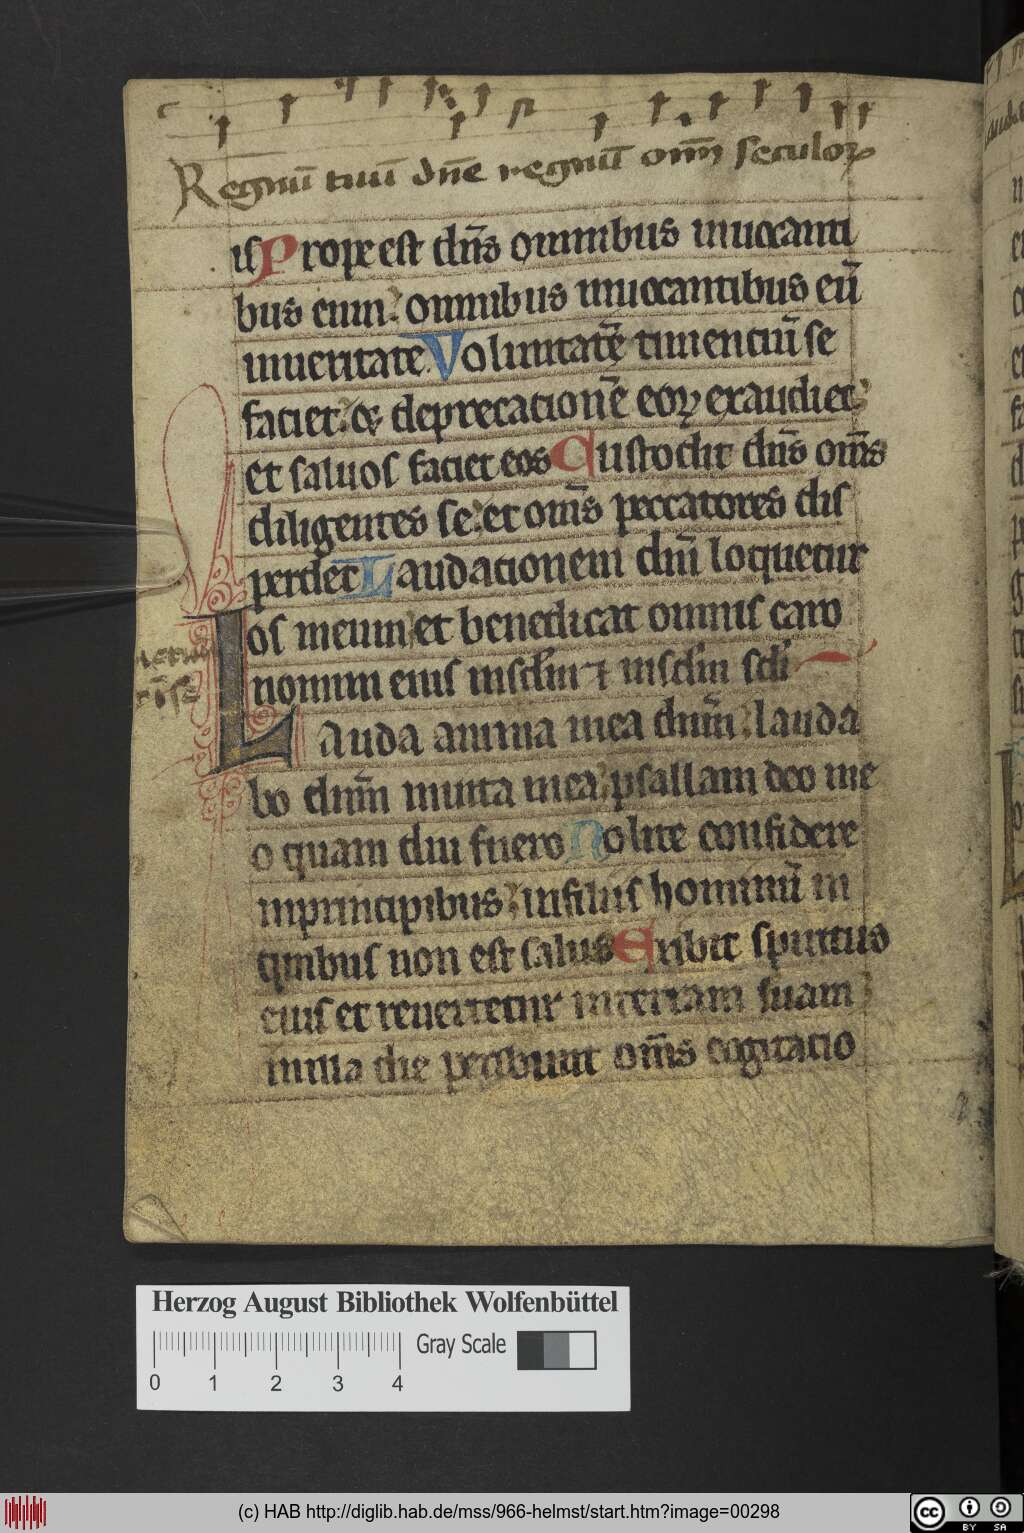 Regnū tuū dn̄e regnū om̄ seculoꝝ
is Prope est dn̄s omnibus inuocanti
bus eum: omnibus inuocantibus eū
inueritate Voluntatē timenciū se
faciet: & deprecacionē eoꝝ exaudiet
et saluos faciet eos Custodit dn̄s om̄s
diligentes se: et om̄s peccatores dis
perdet Laudacionem dn̄i loquetur
os meum: et benedicat omnis caro
nomini eius insclm̄ ⁊ insclm̄ scli
Lauda anima mea dnm̄: lauda
bo dnm̄ inuita mea: psallam deo me
o quam diu fuero Nolite confidere
inprincipibus: infiliis hominū in
quibus non est salus Exibit spiritus
eius et reuertetur interram suam
inilla die peribunt om̄s cogitacio
Herzog August Bibliothek Wolfenbüttel
Gray Scale
0 1 2 3 4
(c) HAB http://diglib.hab.de/mss/966-helmst/start.htm?image=00298
cc BY SA